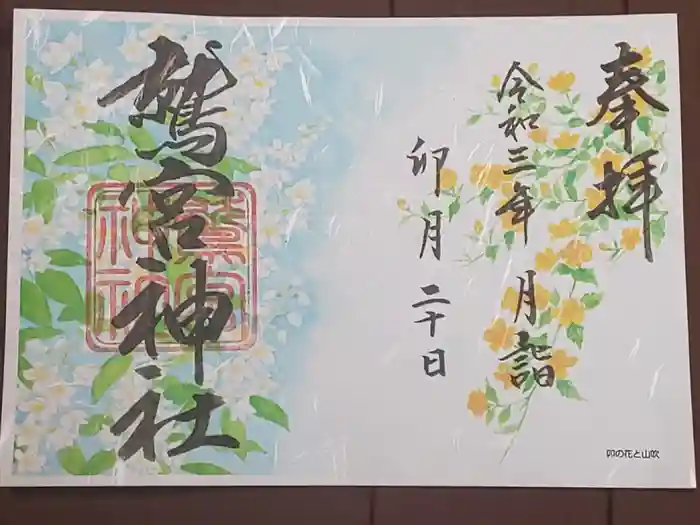 奉拝
令和三年 月詣
卯月 二十日
鷲宮神社
鷲宮神社
卯の花と山吹